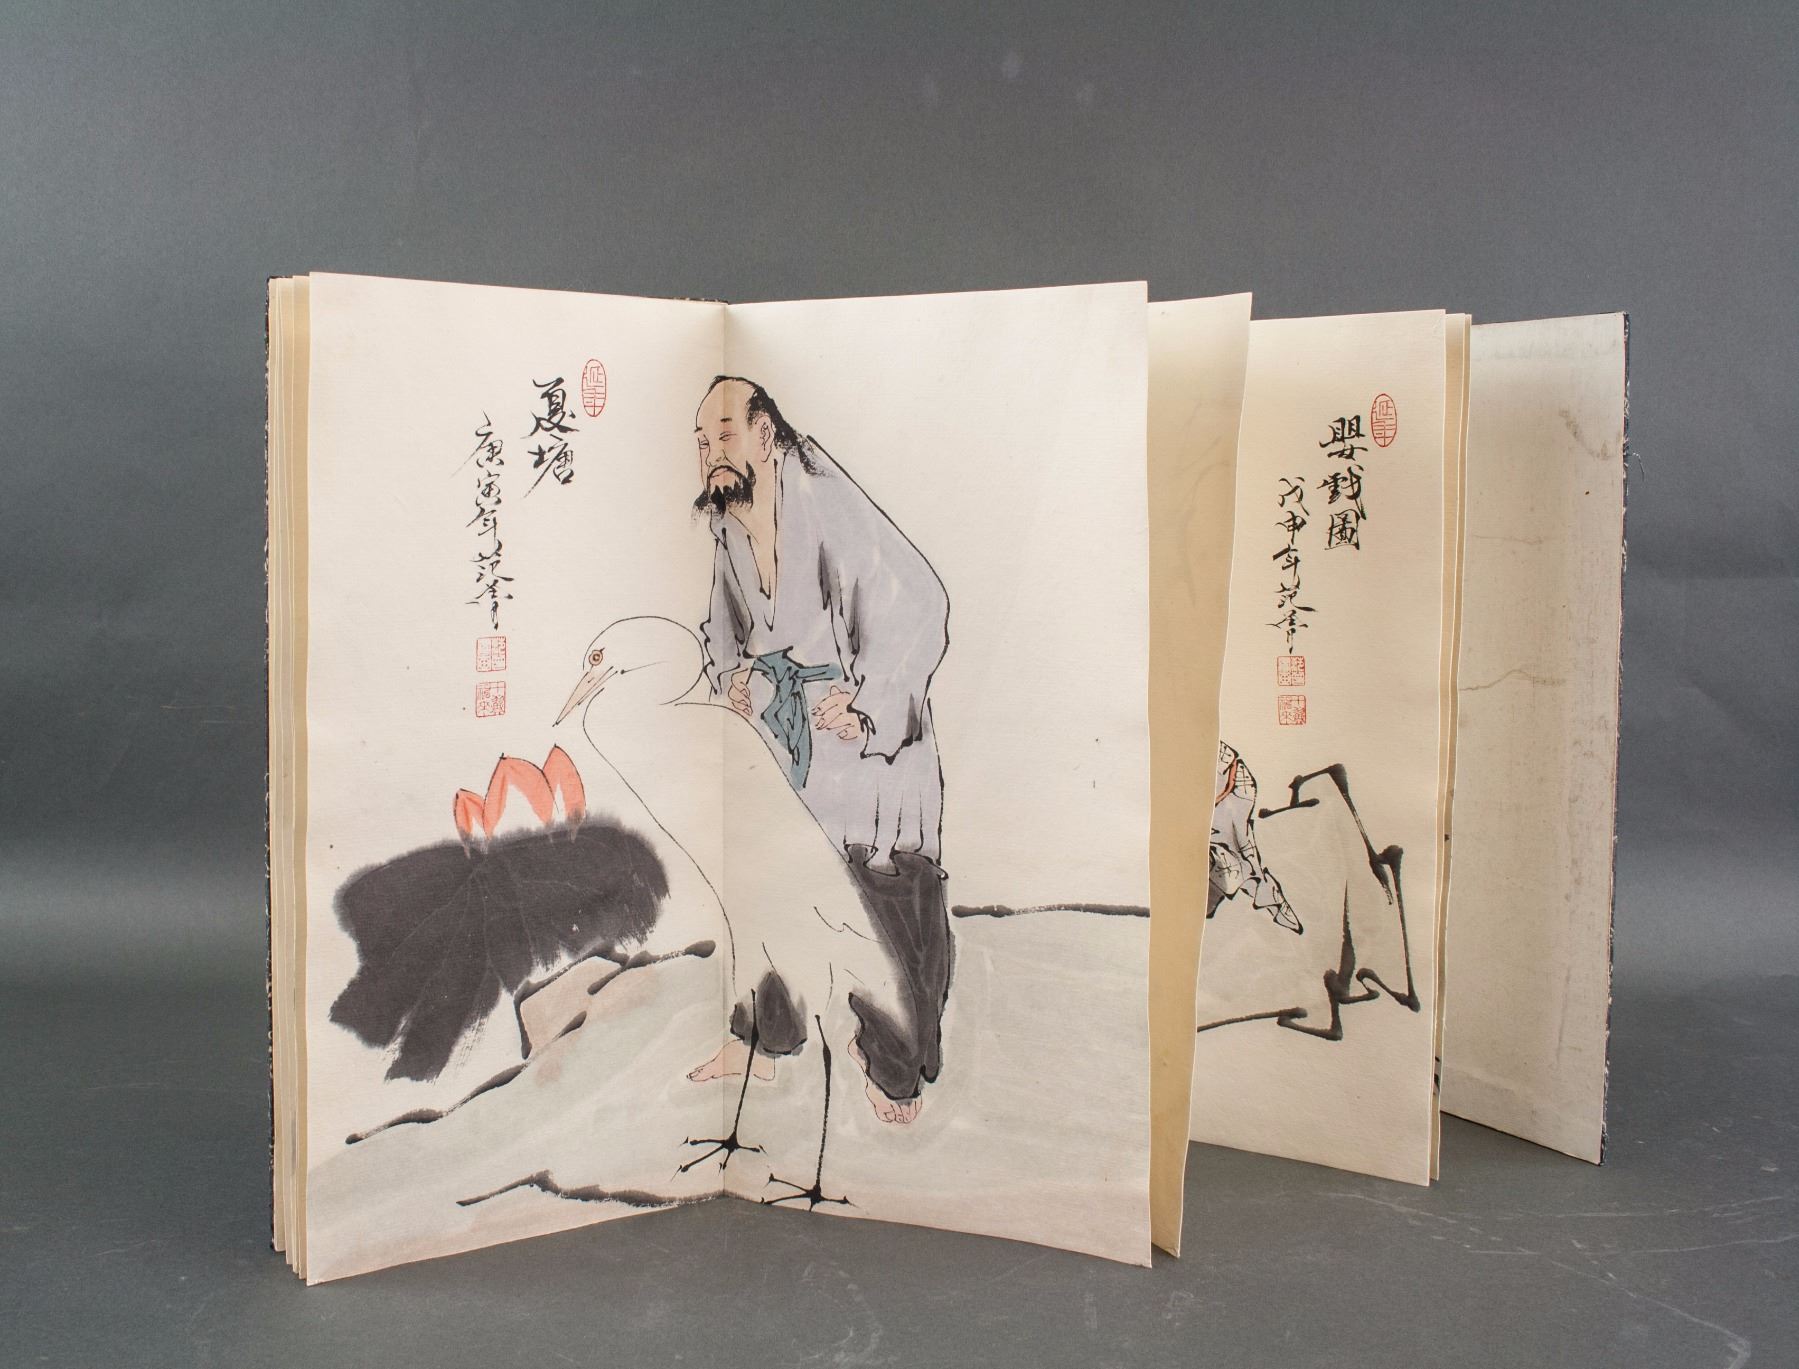 延年
夏塘
庚寅年范曾
延年
嬰戲圖
戊申年范曾